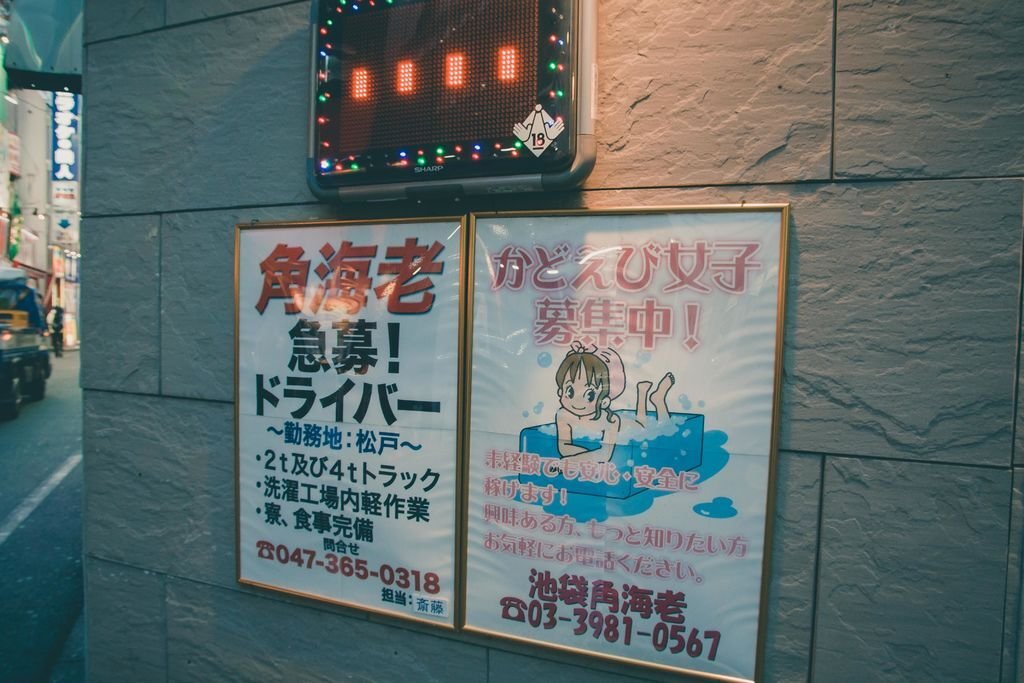 SHARP
18
角海老
急募!
ドライバー
～勤務地：松戸～
・2t及び4tトラック
・洗濯工場内軽作業
・寮、食事完備
問合せ
☎047-365-0318
担当：斎藤
かどえび女子
募集中！
未経験でも安心・安全に
稼げます！
興味ある方、もっと知りたい方
お気軽にお電話ください。
池袋角海老
☎03-3981-0567